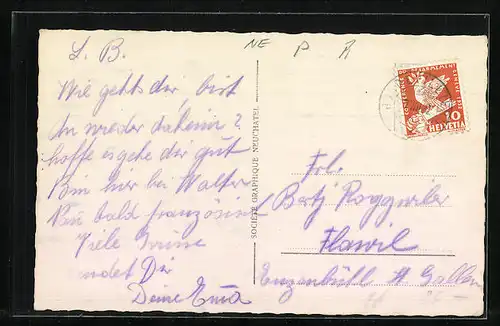 L. B.
Wie gehts dir, bist
du wieder daheim?
hoffe es gehe dir gut
Bin hier bei Walter
bald französin
Viele Grüsse
sendet Dir
Deine Erna
NE P A
SOCIÉTÉ GRAPHIQUE NEUCHATEL
CONFERENCE DU DESARMEMENT GENEVE 1932
10
HELVETIA
Frl.
Berty Roggwiler
Flawil
Enzenbühl St Gallen